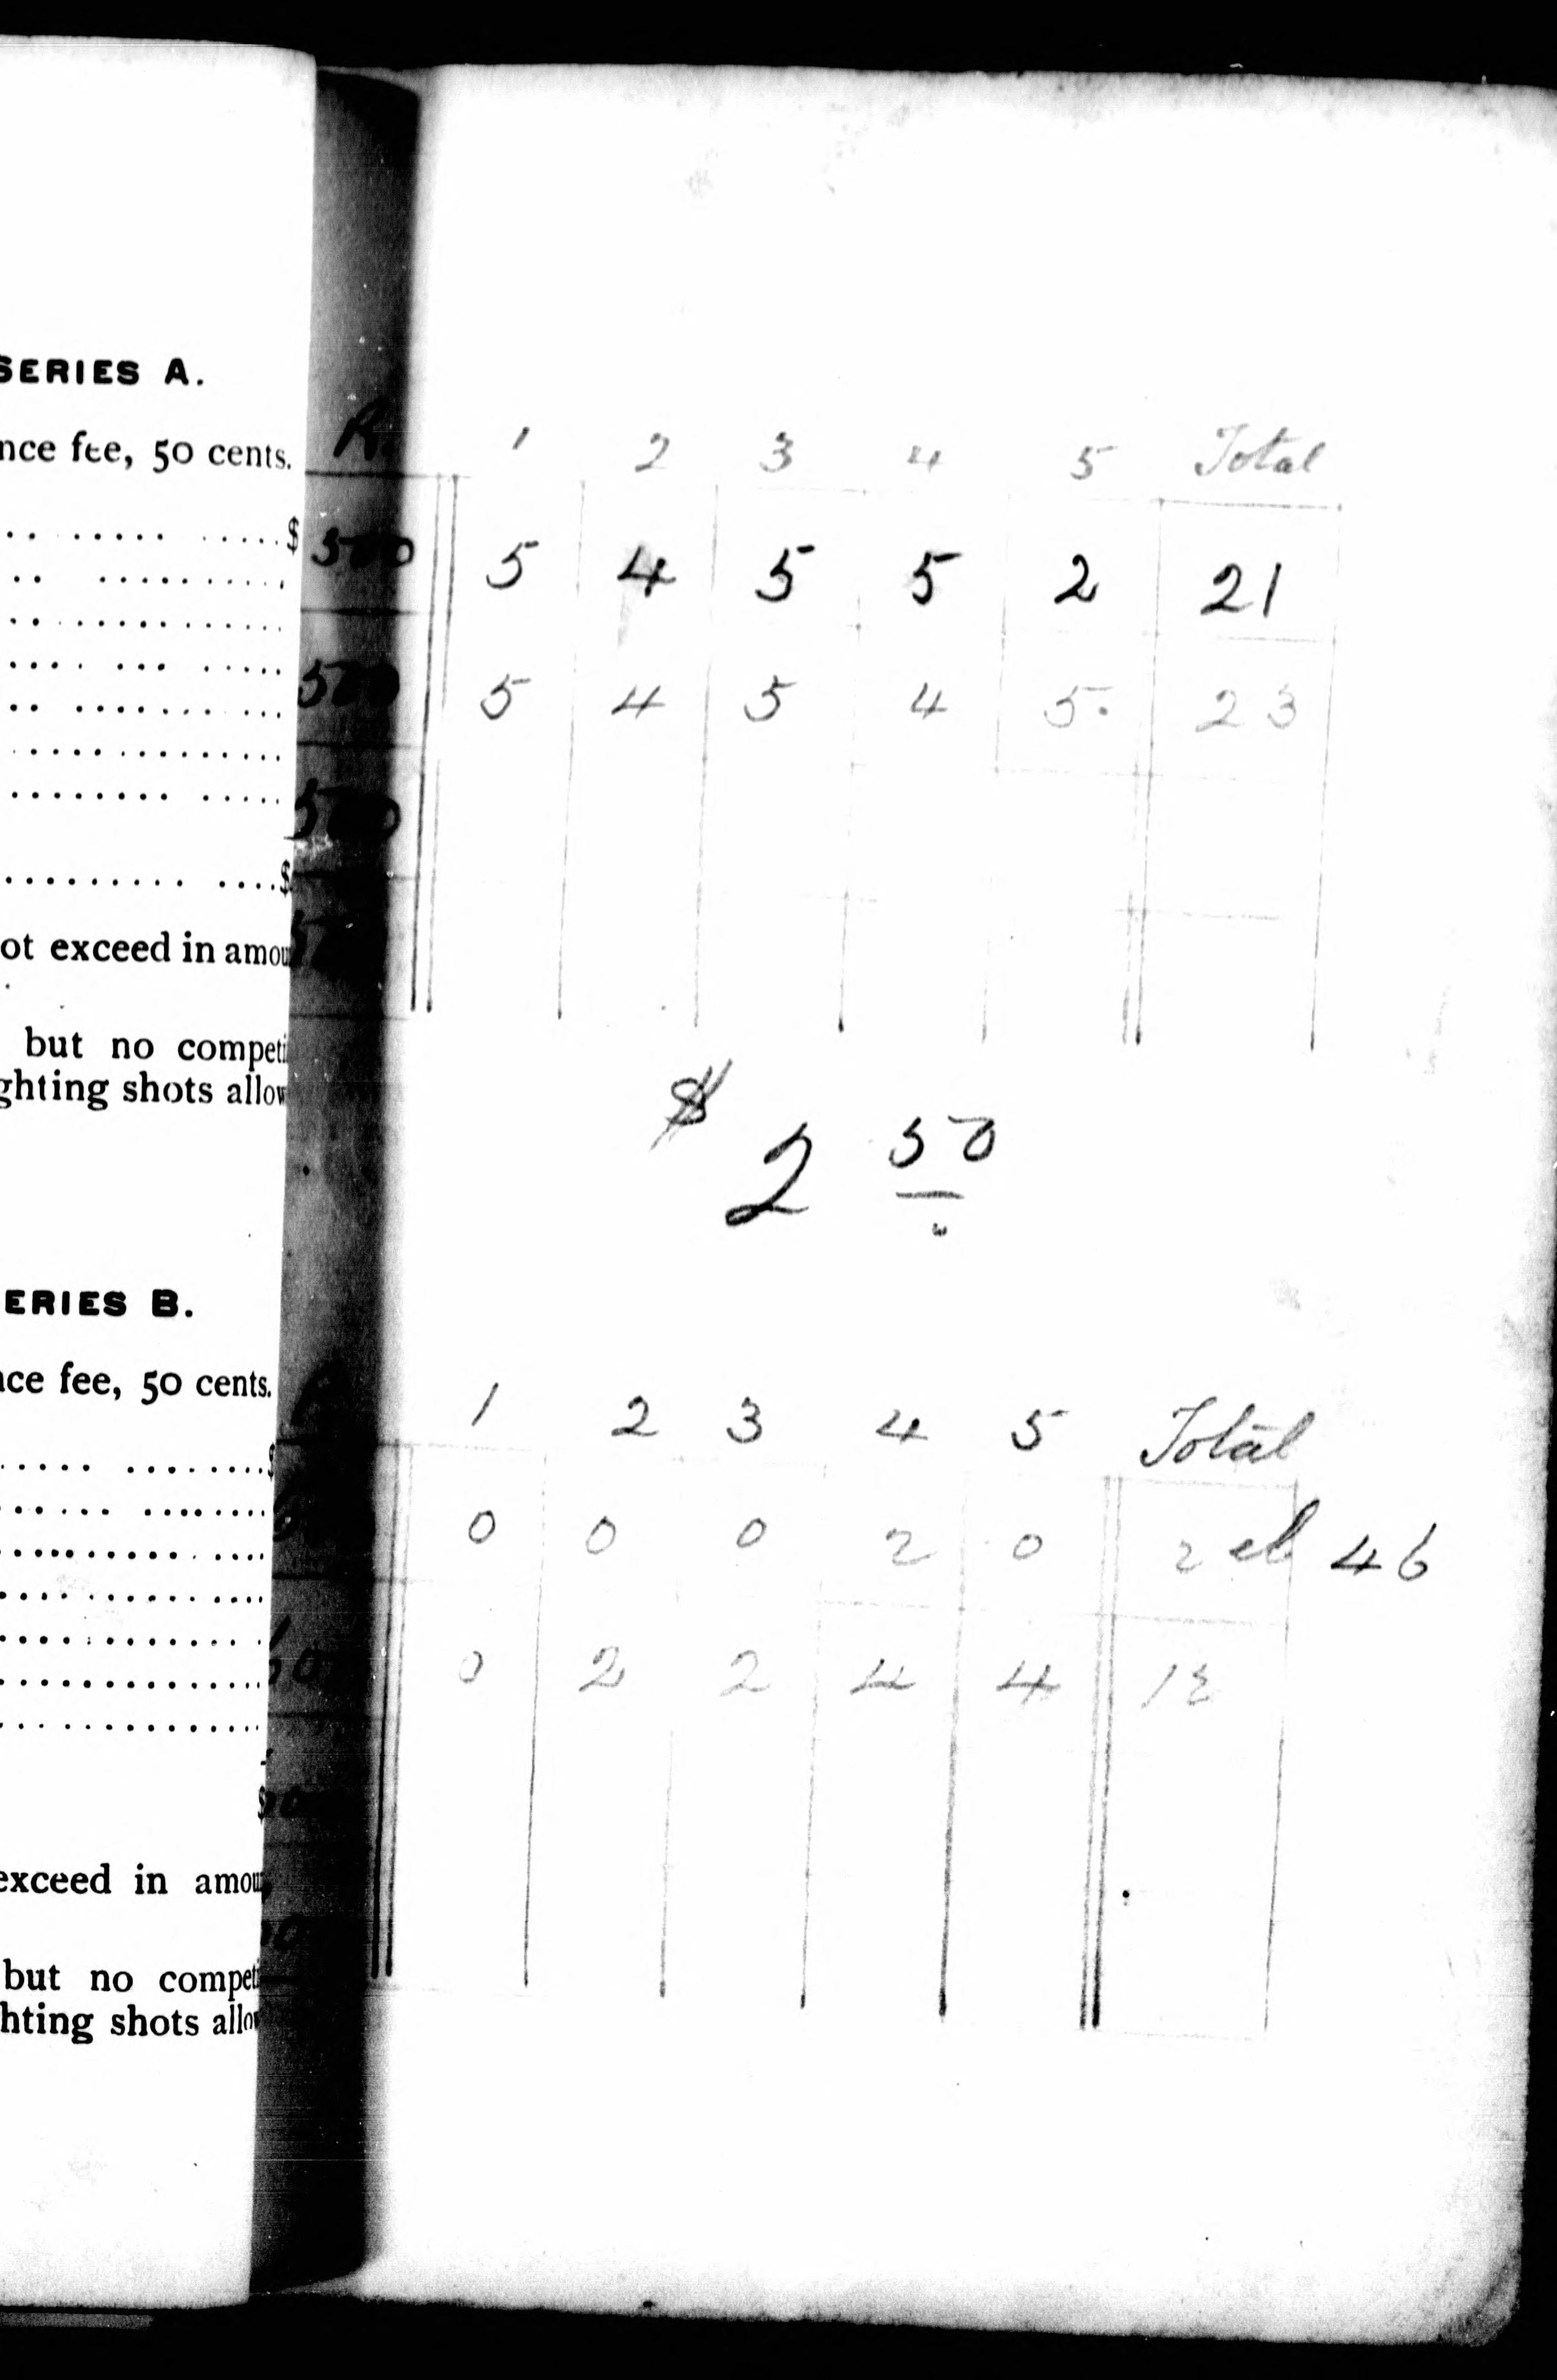 SERIES A.
nce fee, 50 cents.
$
$
ot exceed in amou
but no competi
ghting shots allow
ERIES B.
ce fee, 50 cents.
exceed in amou
but no compet
hting shots allo
R. 1 2 3 4 5 Total
500 5 4 5 5 2 21
500 5 4 5 4 5. 23
500
$ 2 50
1 2 3 4 5 Total
0 0 0 2 0 2 46
0 2 2 4 4 12